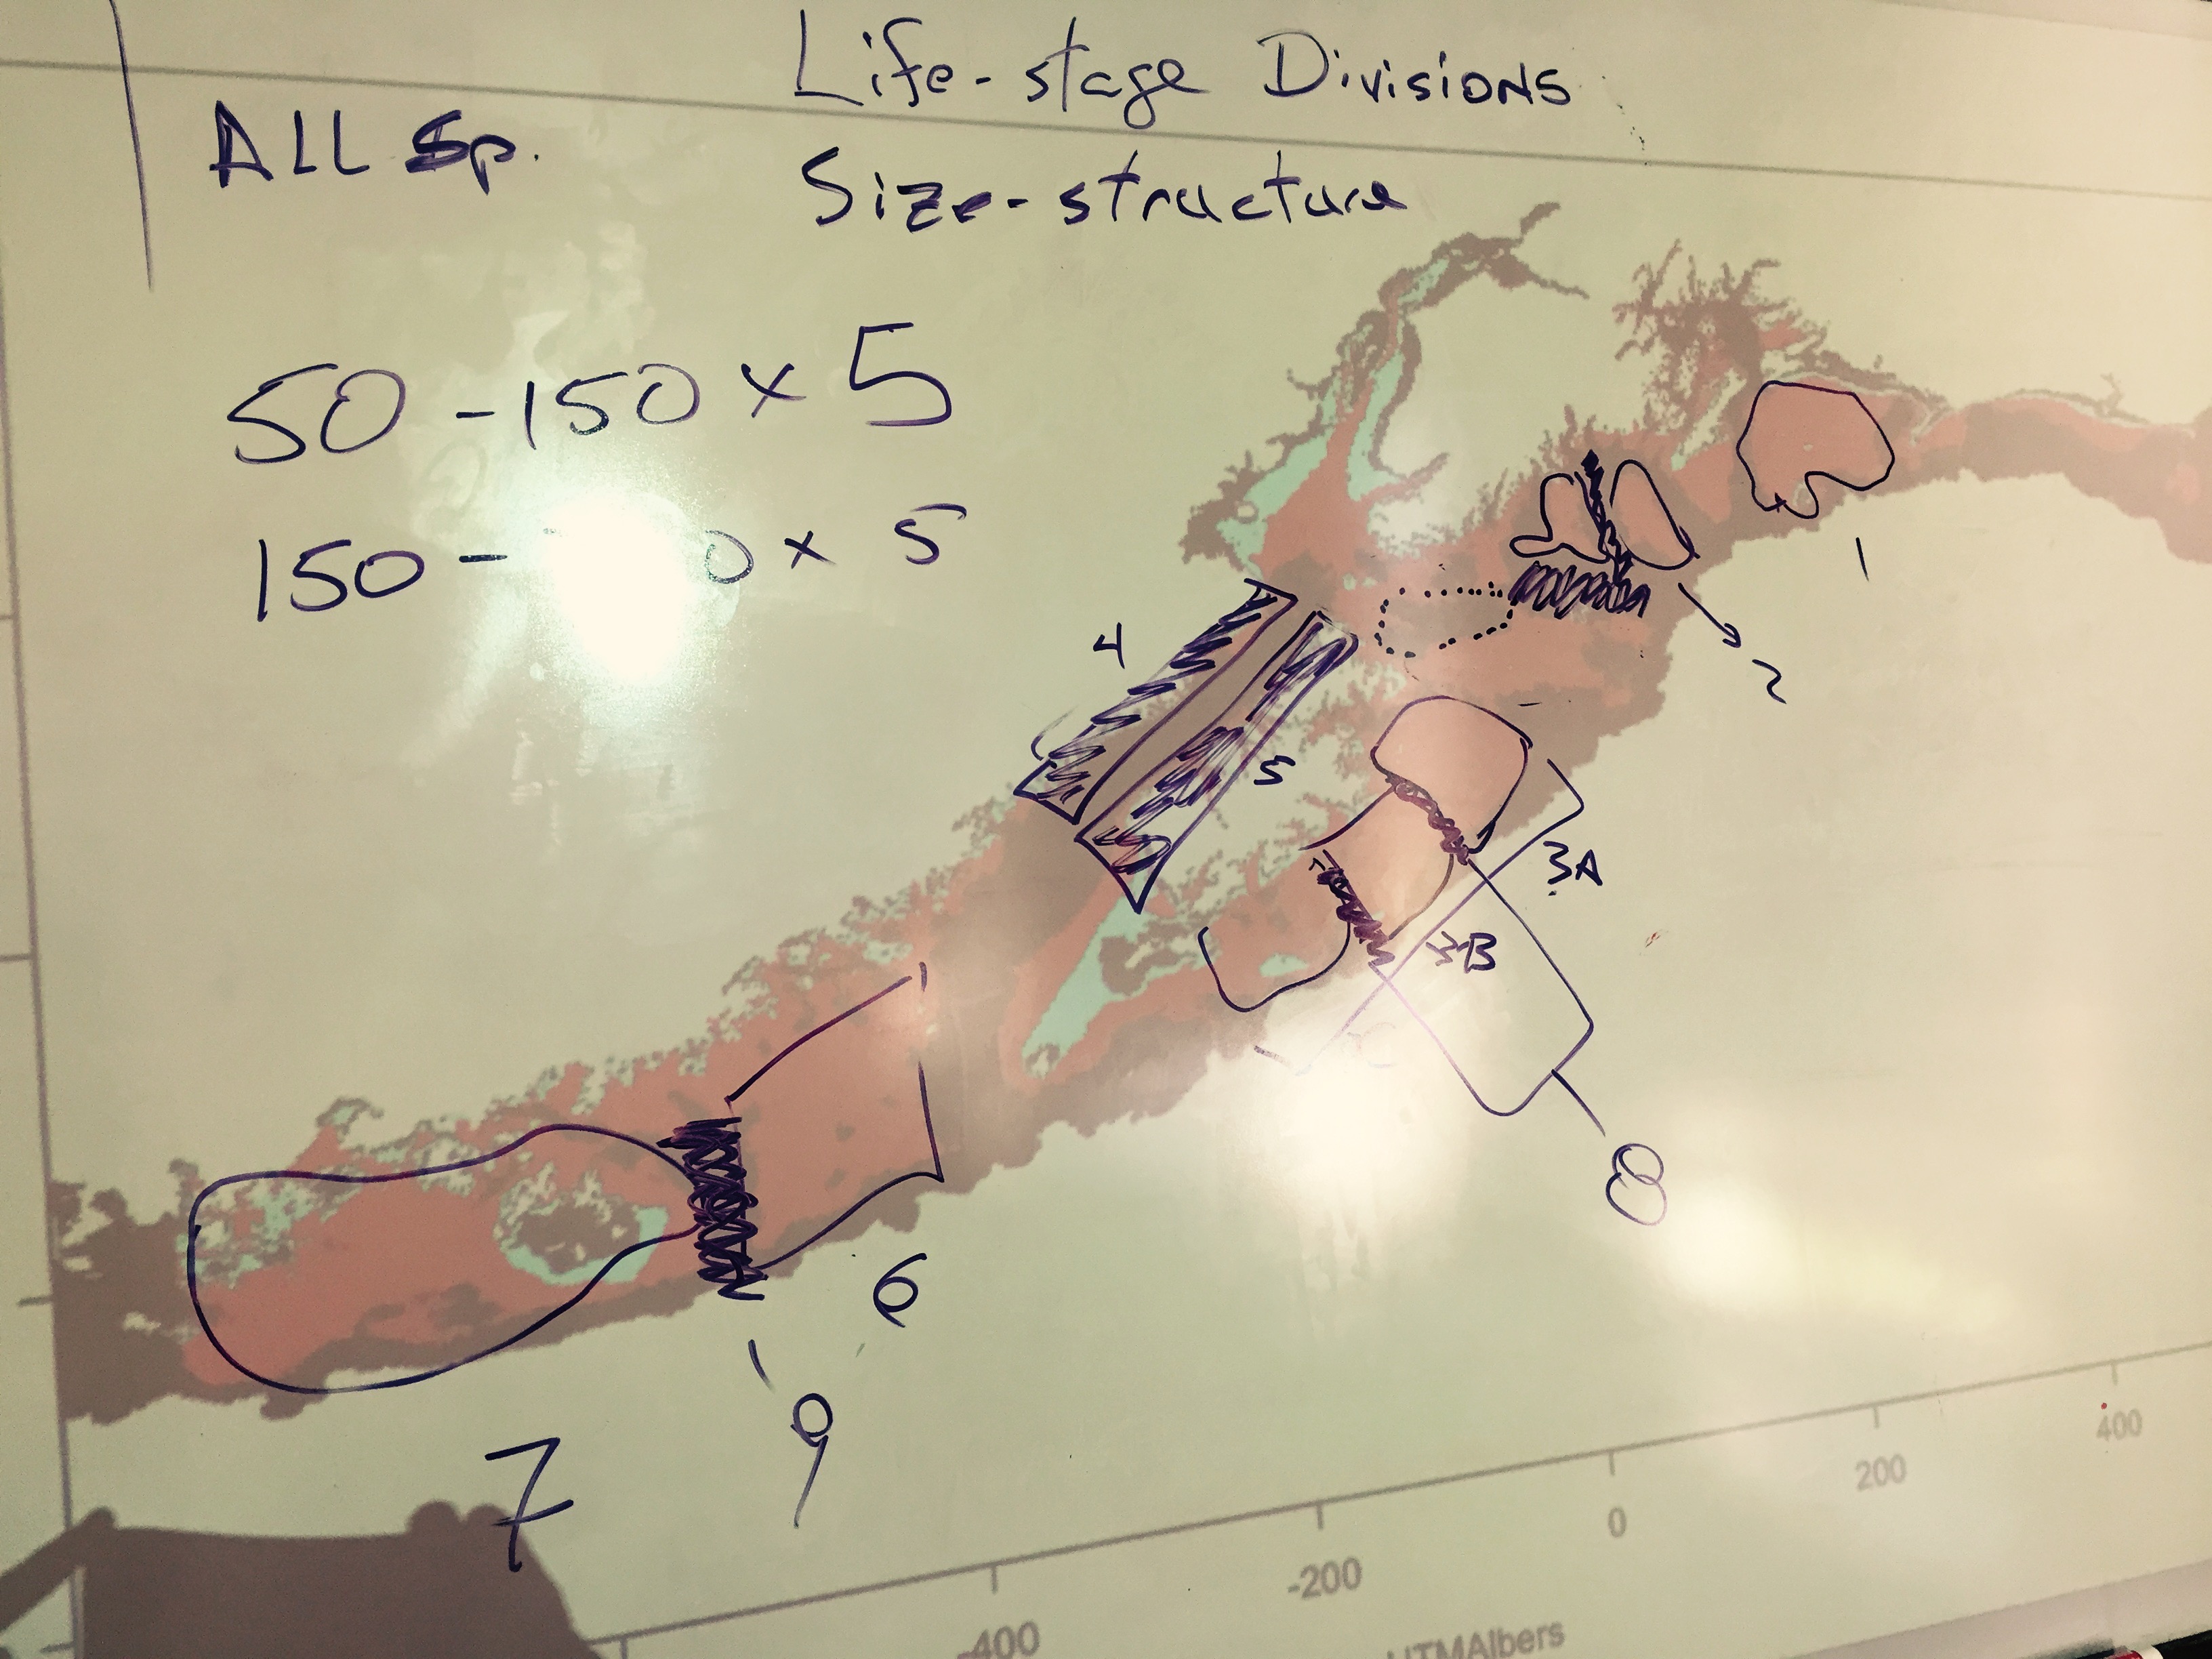 Life-stage Divisions
ALL Sp.
Size-structure
50-150 x 5
150- 0 x 5
1
2
4
5
3A
3B
8
6
9
7
-400
-200
0
200
400
UTMAlbers